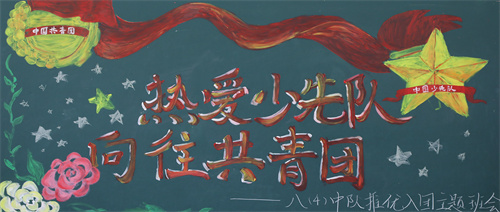 中国共青团
中国少先队
热爱少先队
向往共青团
——八(4)中队推优入团主题班会